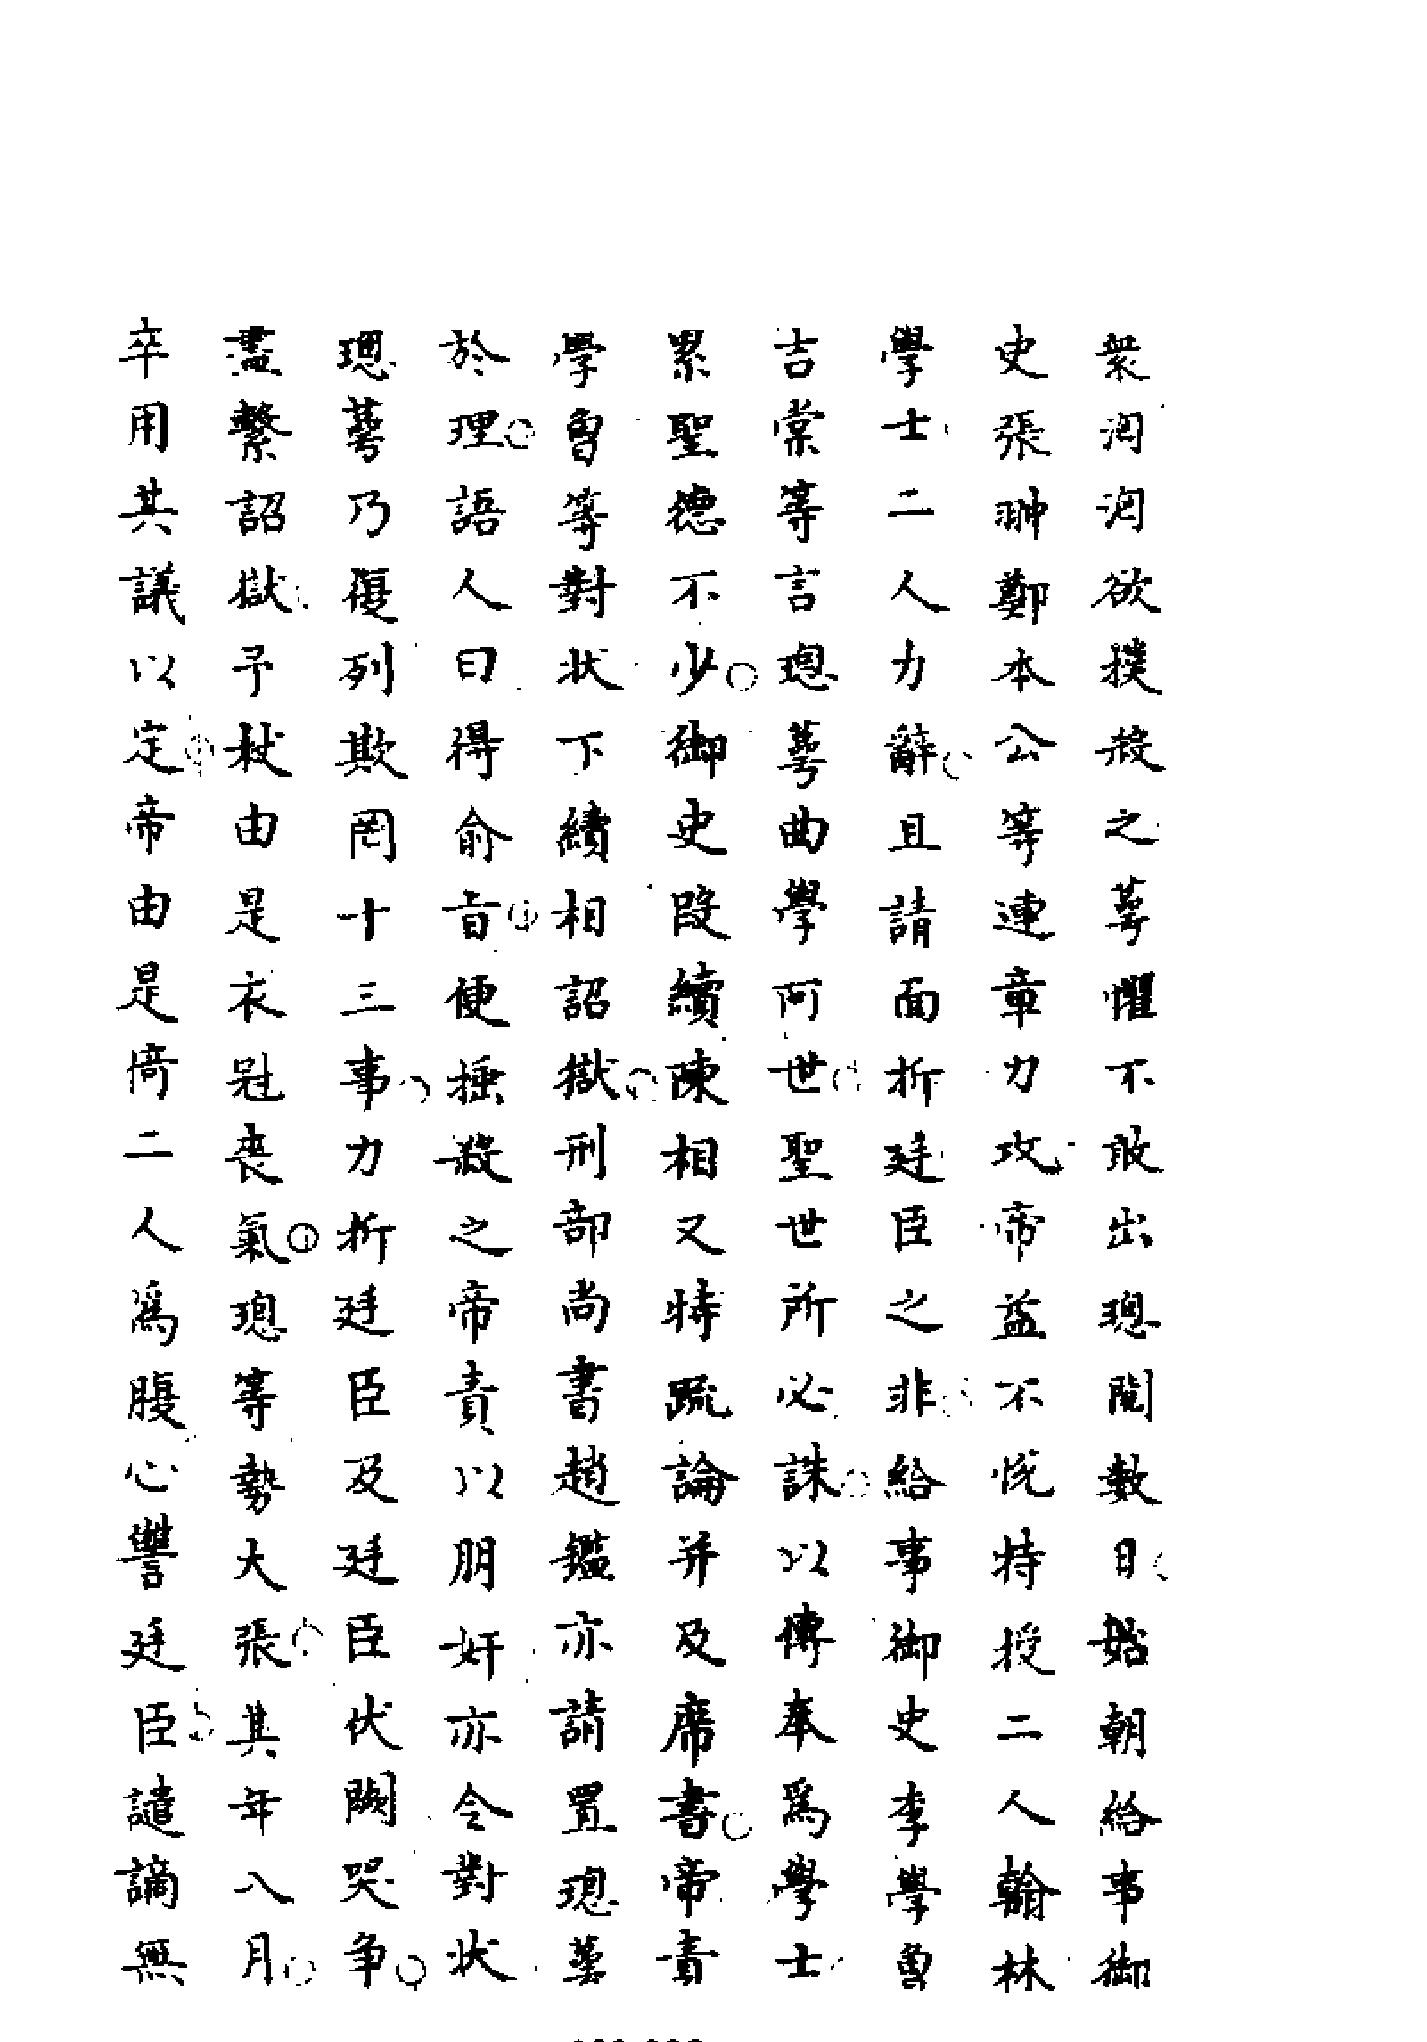 衆洶洶欲撲殺之萼懼不敢出璁閱數日始朝給事御
史張翀鄭本公等連章力攻帝益不悅特授二人翰林
學士二人力辭且請面折廷臣之非給事御史李學曽
吉棠等言璁萼曲學阿世聖世所必誅以傳奉爲學士
累聖德不少御史段續陳相又特疏論并及席書帝責
學曽等對狀下續相詔獄刑部尚書趙鑑亦請置璁萼
於理語人曰得俞旨便捶殺之帝責以朋奸亦令對狀
璁萼乃復列欺罔十三事力折廷臣及廷臣伏闕哭争
盡繫詔獄予杖由是衣冠喪氣璁等勢大張其年八月
卒用其議以定帝由是倚二人爲腹心讐廷臣譴謫無